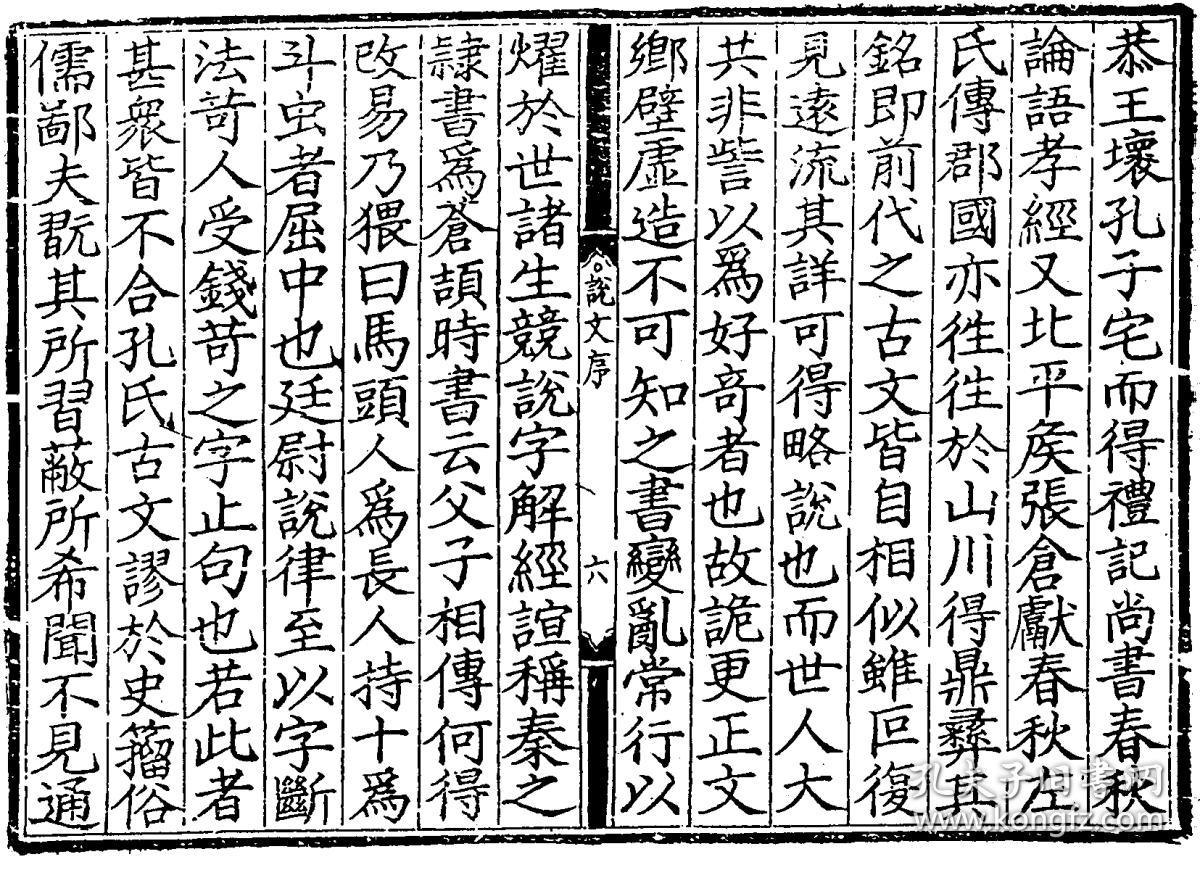 恭王壞孔子宅而得禮記尚書春秋
論語孝經又北平矦張倉獻春秋左
氏傳郡國亦徃徃於山川得鼎彞其
銘即前代之古文皆自相似雖叵復
見遠流其詳可得略說也而世人大
共非訾以爲好奇者也故詭更正文
鄉壁虛造不可知之書變亂常行以
說文序
六
燿於世諸生競說字解經諠稱秦之
隷書爲蒼頡時書云父子相傳何得
改易乃猥曰馬頭人爲長人持十爲
斗虫者屈中也廷尉說律至以字斷
法苛人受錢苛之字止句也若此者
甚衆皆不合孔氏古文謬於史籒俗
儒鄙夫翫其所習蔽所希聞不見通
孔夫子旧书网
www.kongfz.com